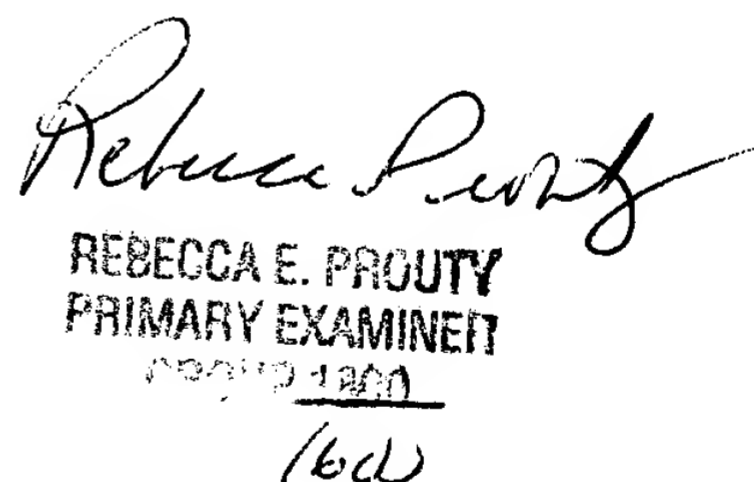 Rebecca Prouty
REBECCA E. PROUTY
PRIMARY EXAMINER
GROUP 1800